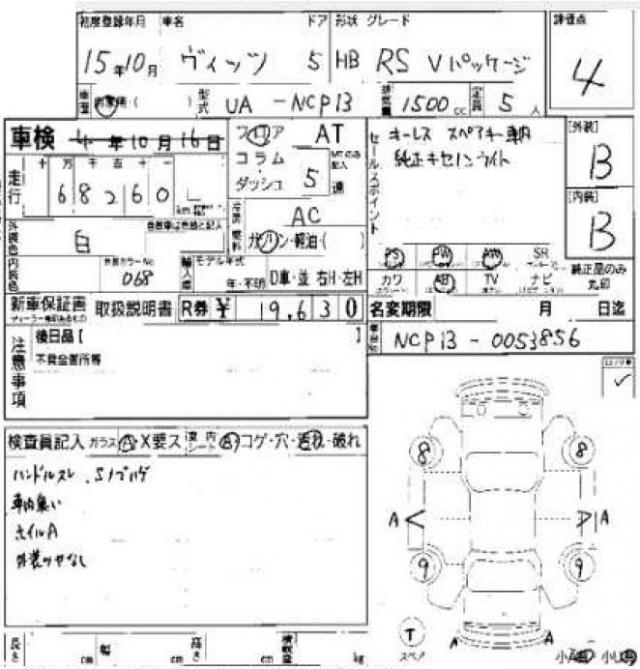 初度登録年月 車名 ドア 形状 グレード 評価点
15年10月 ヴィッツ 5 HB RS Vパッケージ 4
車歴 自家用・( ) 型式 UA-NCP13 排気量 1500cc 定員 5人
車検 4年10月16日 フロア AT セールスポイント キーレス スペアキー車内 [外装]
コラム MTのみ記入 純正キセノンライト B
走行 十万千百十一 68260 km ダッシュ 5速
冷房 AC [内装]
外装色 白 燃料 ガソリン・軽油・( ) B
内装色 カラーNo 068 輸入車 モデル年式 年・不明 D車・並 右H・左H
PS PW AW SR 純正品のみ丸印
カワ AB TV ナビ
新車保証書 取扱説明書 R券 ¥ 19,630 名変期限 月 日迄
注意事項 後日品[ ] 車台No NCP13-0053856
不具合箇所等
検査員記入 ガラス A・X要ス 室内シート A コゲ・穴・汚れ・破れ
ハンドルスレ、Sノブハゲ
車内臭い
ホイルA
8 8
A A
9 9
T
スペア
A A
長さ cm 幅 cm 高さ cm 積載量 kg